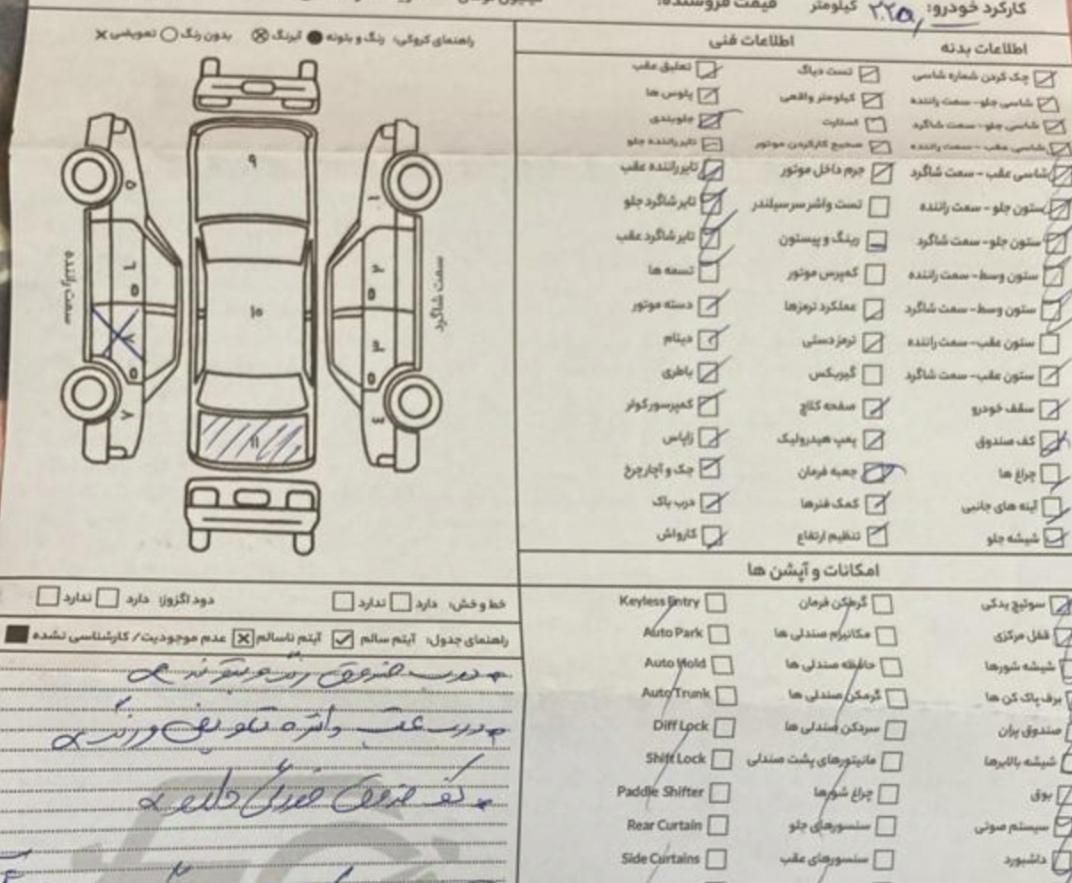 کارکرد خودرو: ۲۲۵٫ کیلومتر قیمت فروشنده:
راهنمای کروکی: رنگ و بتونه آبرنگ بدون رنگ تعویضی ×
۹
۱۰
۱۱
۵
۶
۸
۷
سمت راننده
۱
۲
۳
۴
سمت شاگرد
اطلاعات بدنه
چک کردن شماره شاسی
شاسی جلو - سمت راننده
شاسی جلو - سمت شاگرد
شاسی عقب - سمت راننده
شاسی عقب - سمت شاگرد
ستون جلو - سمت راننده
ستون جلو- سمت شاگرد
ستون وسط- سمت راننده
ستون وسط- سمت شاگرد
ستون عقب- سمت راننده
ستون عقب- سمت شاگرد
سقف خودرو
کف صندوق
چراغ ها
آینه های جانبی
شیشه جلو
اطلاعات فنی
تست دیاگ
کیلومتر واقعی
استارت
صحیح کارکردن موتور
جرم داخل موتور
تست واشر سرسیلندر
رینگ و پیستون
کمپرس موتور
عملکرد ترمزها
ترمزدستی
گیربکس
صفحه کلاچ
پمپ هیدرولیک
جعبه فرمان
کمک فنرها
تنظیم ارتفاع
تعلیق عقب
پلوس ها
جلوبندی
تایر راننده جلو
تایر راننده عقب
تایر شاگرد جلو
تایر شاگرد عقب
تسمه ها
دسته موتور
دینام
باطری
کمپرسور کولر
زاپاس
جک و آچار چرخ
درب باک
کارواش
امکانات و آپشن ها
سوئیچ یدکی
قفل مرکزی
شیشه شورها
برف پاک کن ها
صندوق پران
شیشه بالابرها
بوق
سیستم صوتی
داشبورد
گرمکن فرمان
مکانیزم صندلی ها
حافظه صندلی ها
گرمکن صندلی ها
سردکن صندلی ها
مانیتورهای پشت صندلی
چراغ شورها
سنسورهای جلو
سنسورهای عقب
Keyless Entry
Auto Park
Auto Hold
Auto Trunk
Diff Lock
Shift Lock
Paddle Shifter
Rear Curtain
Side Curtains
خط و خش: دارد ندارد دود اگزوز: دارد ندارد
راهنمای جدول: آیتم سالم آیتم ناسالم عدم موجودیت/ کارشناسی نشده
درب صندوق رنگ و بتونه
درب عقب راننده تعویض و رنگ
کف صندوق